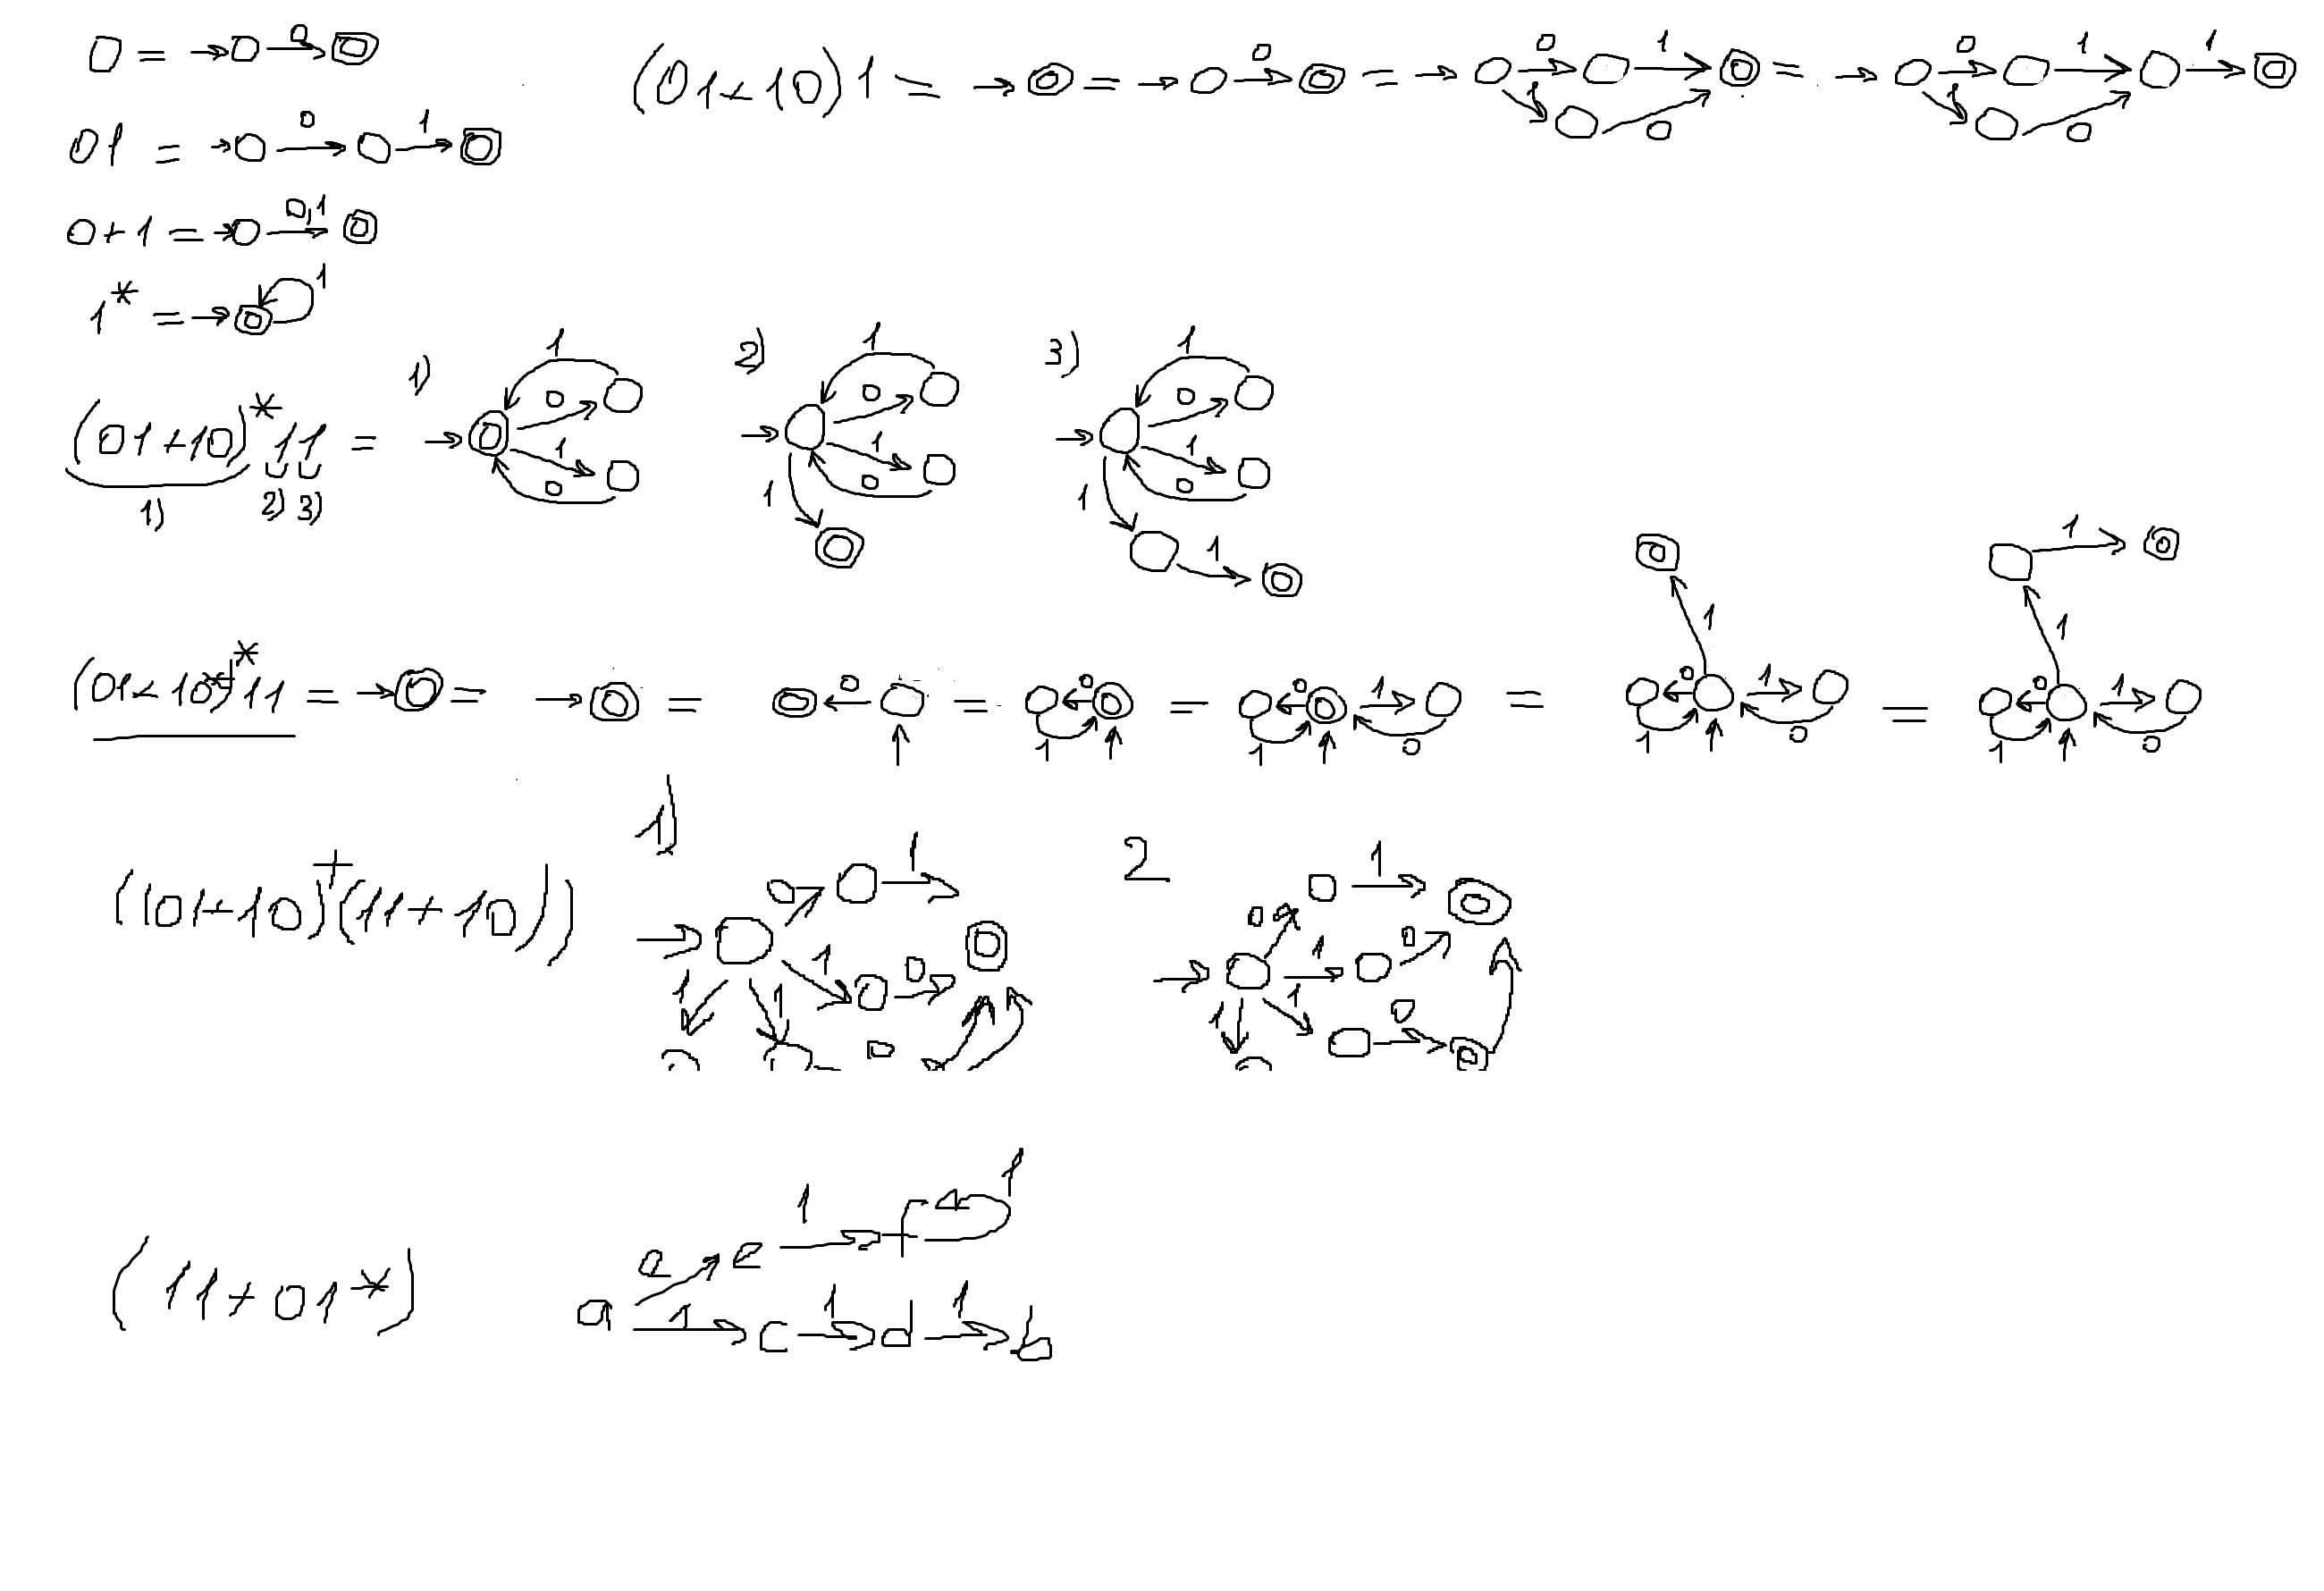 0 = → 0
(01+10)1 = = = = 0 0 1 1 0 0 1 1 0
01 = 0 1
0+1 = 0,1
1* = 1
(01+10)*11 = 1) 1 0 1 0 2) 1 0 1 0 1 3) 1 0 1 0 1 1
1) 2) 3)
(01+10)*11 = = = 0 = 0 1 = 0 1 1 0 = 1 0 1 1 0 = 1 1 0 1 1 0
((01+10)+(11+10)) 1) 0 1 1 0 1 1 0 2 0 1 1 0 1 0 1
(11+01*) a e 1 f 1
1 c 1 d 1 b